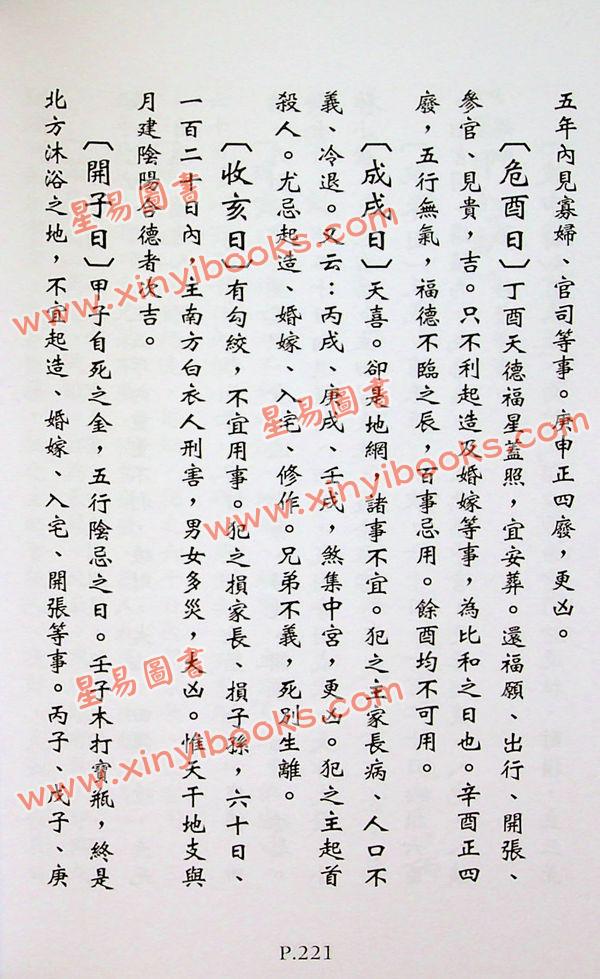 五年內見寡婦、官司等事。庚申正四廢，更凶。
〔危酉日〕丁酉天德福星蓋照，宜安葬。還福願、出行、開張、
參官、見貴，吉。只不利起造及婚嫁等事，為比和之日也。辛酉正四
廢，五行無氣，福德不臨之辰，百事忌用。餘酉均不可用。
〔成戌日〕天喜。卻是地網，諸事不宜。犯之主家長病、人口不
義、冷退。又云：丙戌、庚戌、壬戌，煞集中宮，更凶。犯之主起首
殺人。尤忌起造、婚嫁、入宅、修作。兄弟不義，死別生離。
〔收亥日〕有勾絞，不宜用事。犯之損家長、損子孫，六十日、
一百二十日內，主南方白衣人刑害，男女多災，大凶。惟天干地支與
月建陰陽合德者次吉。
〔開子日〕甲子自死之金，五行陰忌之日。壬子木打寶瓶，終是
北方沐浴之地，不宜起造、婚嫁、入宅、開張等事。丙子、戊子、庚
P.221
星易圖書
www.xinyibooks.com
星易圖書
www.xinyibooks.com
星易圖書
www.xinyibooks.com